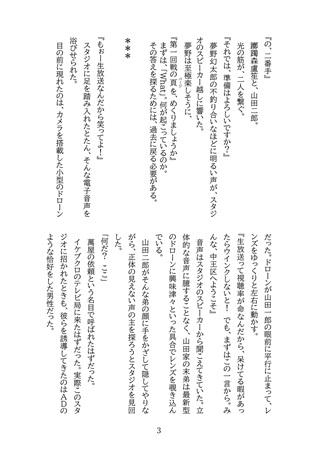 『の、二番手』
躑躅森盧笙と、山田二郎。
光の筋が、二人を繋ぐ。
『それでは、準備はよろしいですか？』
夢野幻太郎の不釣り合いなほどに明るい声が、スタジ
オのスピーカー越しに響いた。
夢野は至極楽しそうに、
『第一回戦の頁を、めくりましょうか』
まずは、「What」。何が起こっているのか。
その答えを探るためには、過去に戻る必要がある。
＊＊＊
『もぉー生放送なんだから笑ってよ！』
スタジオに足を踏み入れたとたん、そんな電子音声を
浴びせられた。
目の前に現れたのは、カメラを搭載した小型のドローン
だった。ドローンが山田一郎の眼前に平行に止まって、レ
ンズをゆっくりと左右に動かす。
『生放送って視聴率が命なんだから、呆けてる暇があっ
たらウインクしないと！　でも、まずはこの一言から。み
んな、中王区へようこそ』
音声はスタジオのスピーカーから聞こえてきていた。立
体的な音声に臆することなく、山田家の末弟は最新型
のドローンに興味津々といった具合でレンズを覗き込ん
でいる。
山田二郎がそんな弟の顔に手をかざして隠してやりな
がら、正体の見えない声の主を探ろうとスタジオを見回
した。
「何だ？　ここ」
萬屋の依頼という名目で呼ばれたはずだった。
イケブクロのテレビ局に来たはずだった。実際このスタ
ジオに招かれたときも、彼らを誘導してきたのはＡＤの
ような恰好をした男性だった。
3